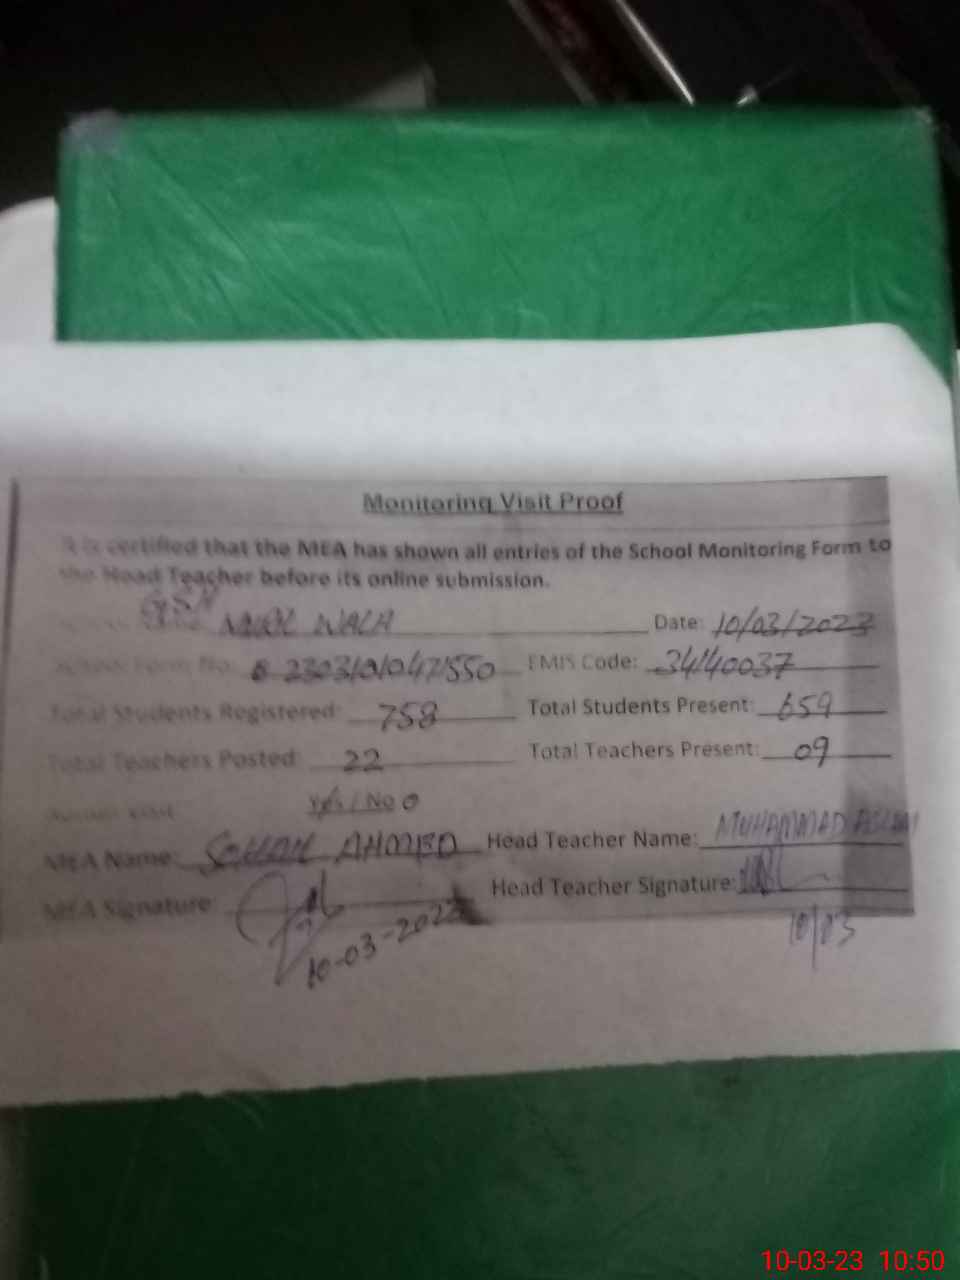 Monitoring Visit Proof
It is certified that the MEA has shown all entries of the School Monitoring Form to
the Head Teacher before its online submission.
WALA Date: 10/03/2023
School Form No: EMIS Code: 34140037
Total Students Registered: 758 Total Students Present: 659
Total Teachers Posted: 22 Total Teachers Present: 09
Yes / No
MEA Name: AHMED Head Teacher Name: MUHAMMAD ASLAM
MEA Signature: Head Teacher Signature:
10-03-2023 10/03
10-03-23 10:50